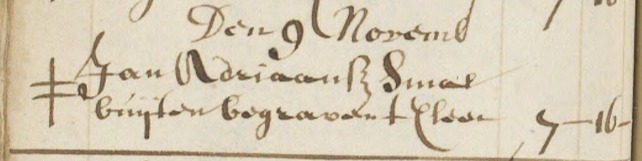 Den 9 Novemb
Jan Adriaansz Smal
buijten begraven t Cleet 7-16-